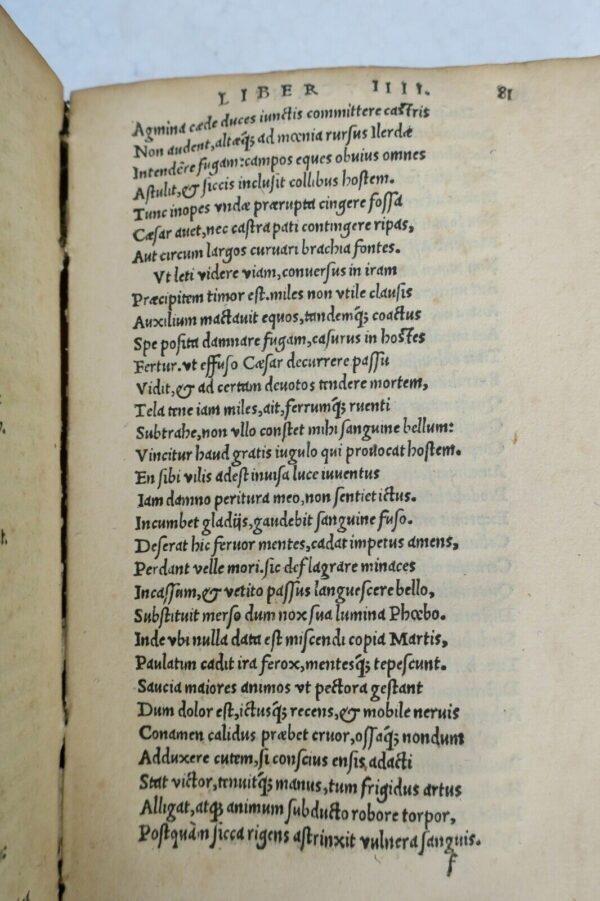 LIBER IIII. 81
Agmina cæde duces iunctis committere castris
Non audent, altæq; ad mœnia rursus Ilerdæ
Intendêre fugam: campos eques obuius omnes
Astulit, & siccis inclusit collibus hostem.
Tunc inopes vndæ prærupta cingere fossa
Cæsar auet, nec castra pati contingere ripas,
Aut circum largos curuari brachia fontes.
Vt leti videre viam, conuersus in iram
Præcipitem timor est. miles non vtile clausis
Auxilium mactauit equos, tandemq; coactus
Spe posita damnare fugam, casurus in hostes
Fertur. vt effuso Cæsar decurrere passu
Vidit, & ad certam deuotos tendere mortem,
Tela tene iam miles, ait, ferrumq; ruenti
Subtrahe, non vllo constet mihi sanguine bellum:
Vincitur haud gratis iugulo qui prouocat hostem.
En sibi vilis adest inuisa luce iuuentus
Iam damno peritura meo, non sentiet ictus.
Incumbet gladijs, gaudebit sanguine fuso.
Deserat hic feruor mentes, cadat impetus amens,
Perdant velle mori. sic deflagrare minaces
Incassum, & vetito passus languescere bello,
Substituit merso dum nox sua lumina Phœbo.
Inde vbi nulla data est miscendi copia Martis,
Paulatim cadit ira ferox, mentesq; tepescunt.
Saucia maiores animos vt pectora gestant
Dum dolor est, ictusq; recens, & mobile neruis
Conamen calidus præbet cruor, ossaq; nondum
Adduxere cutem, si conscius ensis adacti
Stat victor, tenuitq; manus, tum frigidus artus
Alligat, atq; animum subducto robore torpor,
Postquàm sicca rigens astrinxit vulnera sanguis.
f